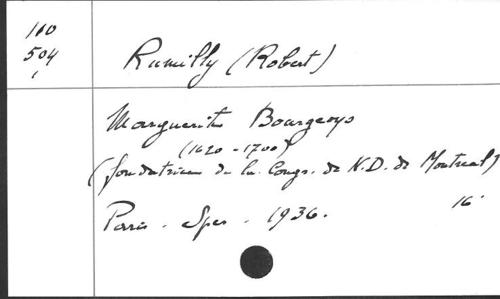 110
504
1
Rumilly (Robert)
Marguerite Bourgeoys
(1620-1700)
(fondatrice de la Congr. de N.D. de Montreal)
Paris. Spes. 1936. 16°